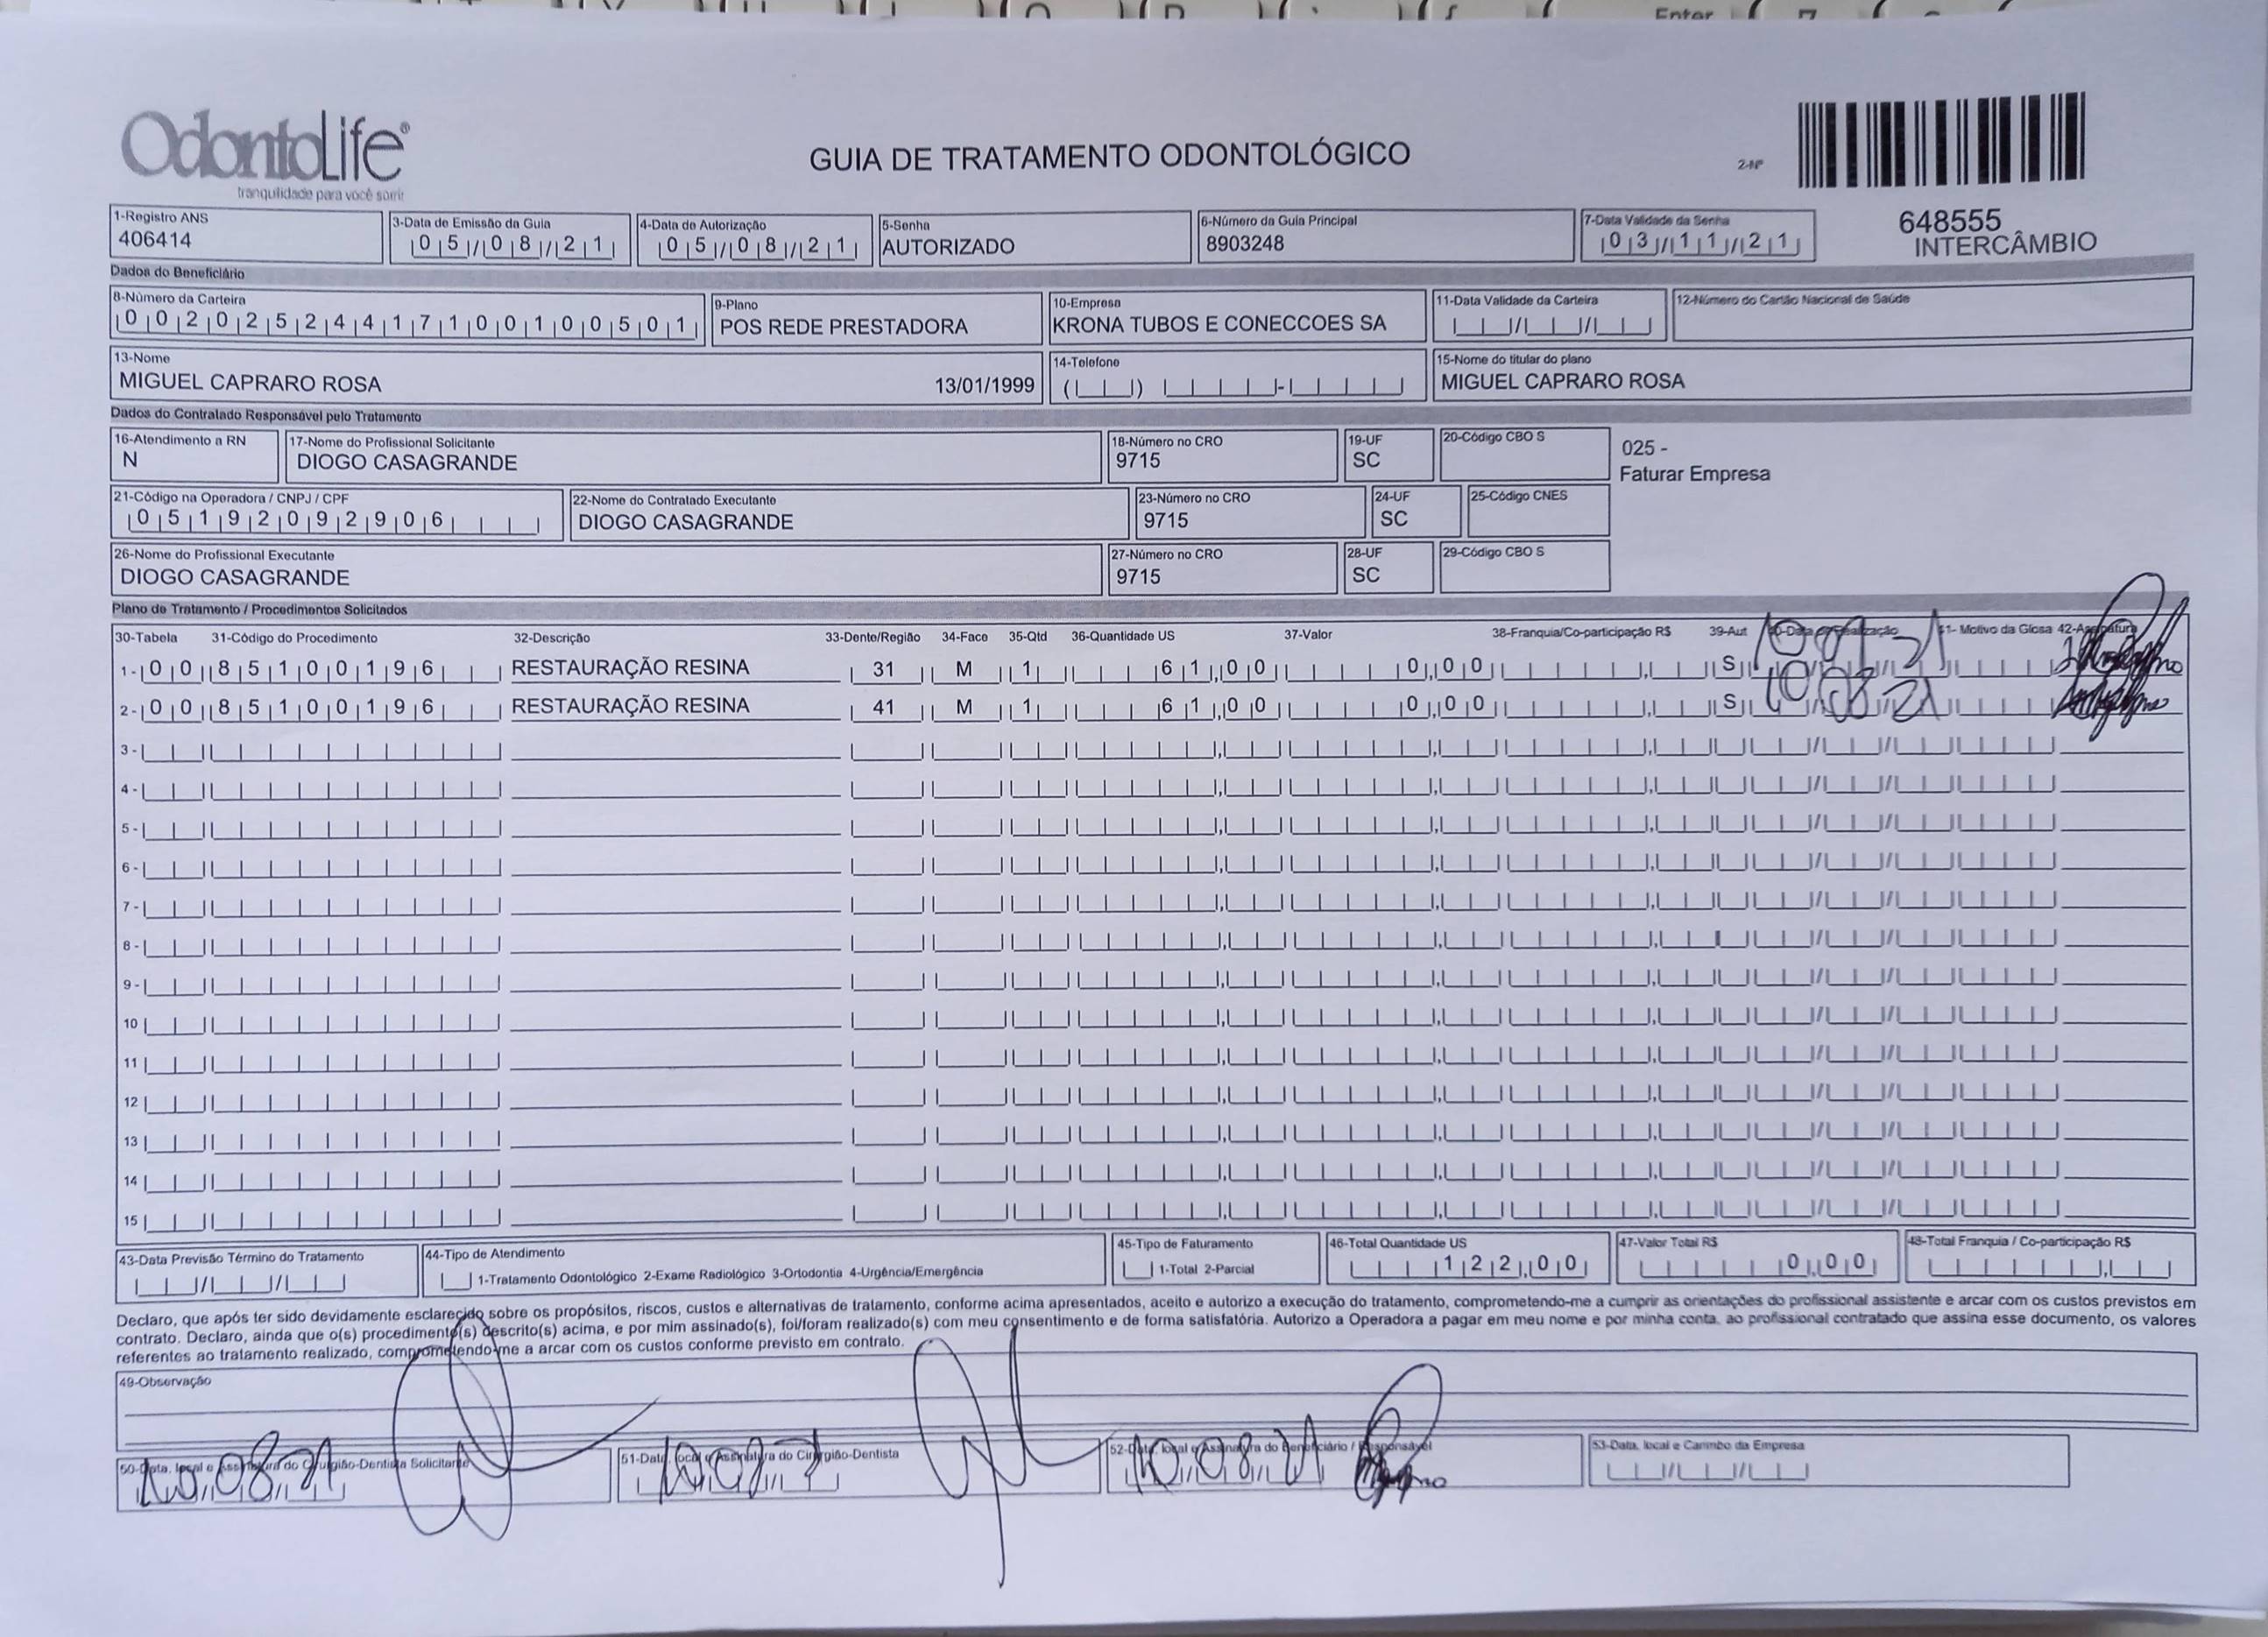 Enter
OdontoLife®
tranquilidade para você sorrir
GUIA DE TRATAMENTO ODONTOLÓGICO
2-Nº
648555
INTERCÂMBIO
1-Registro ANS
406414
3-Data de Emissão da Guia
05/08/21
4-Data de Autorização
05/08/21
5-Senha
AUTORIZADO
6-Número da Guia Principal
8903248
7-Data Validade da Senha
03/11/21
Dados do Beneficiário
8-Número da Carteira
00202524417100100501
9-Plano
POS REDE PRESTADORA
10-Empresa
KRONA TUBOS E CONECCOES SA
11-Data Validade da Carteira
12-Número do Cartão Nacional de Saúde
13-Nome
MIGUEL CAPRARO ROSA 13/01/1999
14-Telefone
15-Nome do titular do plano
MIGUEL CAPRARO ROSA
Dados do Contratado Responsável pelo Tratamento
16-Atendimento a RN
N
17-Nome do Profissional Solicitante
DIOGO CASAGRANDE
18-Número no CRO
9715
19-UF
SC
20-Código CBO S
025 -
Faturar Empresa
21-Código na Operadora / CNPJ / CPF
05192092906
22-Nome do Contratado Executante
DIOGO CASAGRANDE
23-Número no CRO
9715
24-UF
SC
25-Código CNES
26-Nome do Profissional Executante
DIOGO CASAGRANDE
27-Número no CRO
9715
28-UF
SC
29-Código CBO S
Plano de Tratamento / Procedimentos Solicitados
30-Tabela 31-Código do Procedimento 32-Descrição 33-Dente/Região 34-Face 35-Qtd 36-Quantidade US 37-Valor 38-Franquia/Co-participação R$ 39-Aut 40-Data de Realização 41- Motivo da Glosa 42-Assinatura
1- 00 85100196 RESTAURAÇÃO RESINA 31 M 1 61,00 0,00 S
2- 00 85100196 RESTAURAÇÃO RESINA 41 M 1 61,00 0,00 S 10/08/21
3-
4-
5-
6-
7-
8-
9-
10
11
12
13
14
15
43-Data Previsão Término do Tratamento
44-Tipo de Atendimento
1-Tratamento Odontológico 2-Exame Radiológico 3-Ortodontia 4-Urgência/Emergência
45-Tipo de Faturamento
1-Total 2-Parcial
46-Total Quantidade US
122,00
47-Valor Total R$
0,00
48-Total Franquia / Co-participação R$
Declaro, que após ter sido devidamente esclarecido sobre os propósitos, riscos, custos e alternativas de tratamento, conforme acima apresentados, aceito e autorizo a execução do tratamento, comprometendo-me a cumprir as orientações do profissional assistente e arcar com os custos previstos em
contrato. Declaro, ainda que o(s) procedimento(s) descrito(s) acima, e por mim assinado(s), foi/foram realizado(s) com meu consentimento e de forma satisfatória. Autorizo a Operadora a pagar em meu nome e por minha conta, ao profissional contratado que assina esse documento, os valores
referentes ao tratamento realizado, comprometendo-me a arcar com os custos conforme previsto em contrato.
49-Observação
50-Data, local e Assinatura do Cirurgião-Dentista Solicitante
10/08/21
51-Data, local e Assinatura do Cirurgião-Dentista
52-Data, local e Assinatura do Beneficiário / Responsável
10/08/21
53-Data, local e Carimbo da Empresa